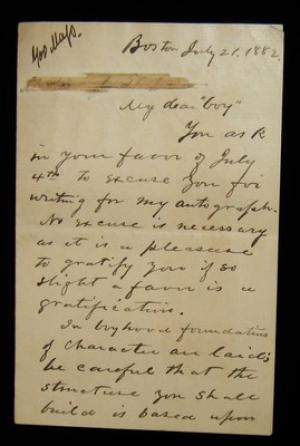 Boston July 21. 1882.
My dear "boy"
You ask
in your favor of July
4th to excuse you for
writing for my autograph.
No excuse is necessary
as it is a pleasure
to gratify you if so
slight a favor is a
gratification.
In boyhood foundations
of character are laid;
be careful that the
structure you shall
build is based upon